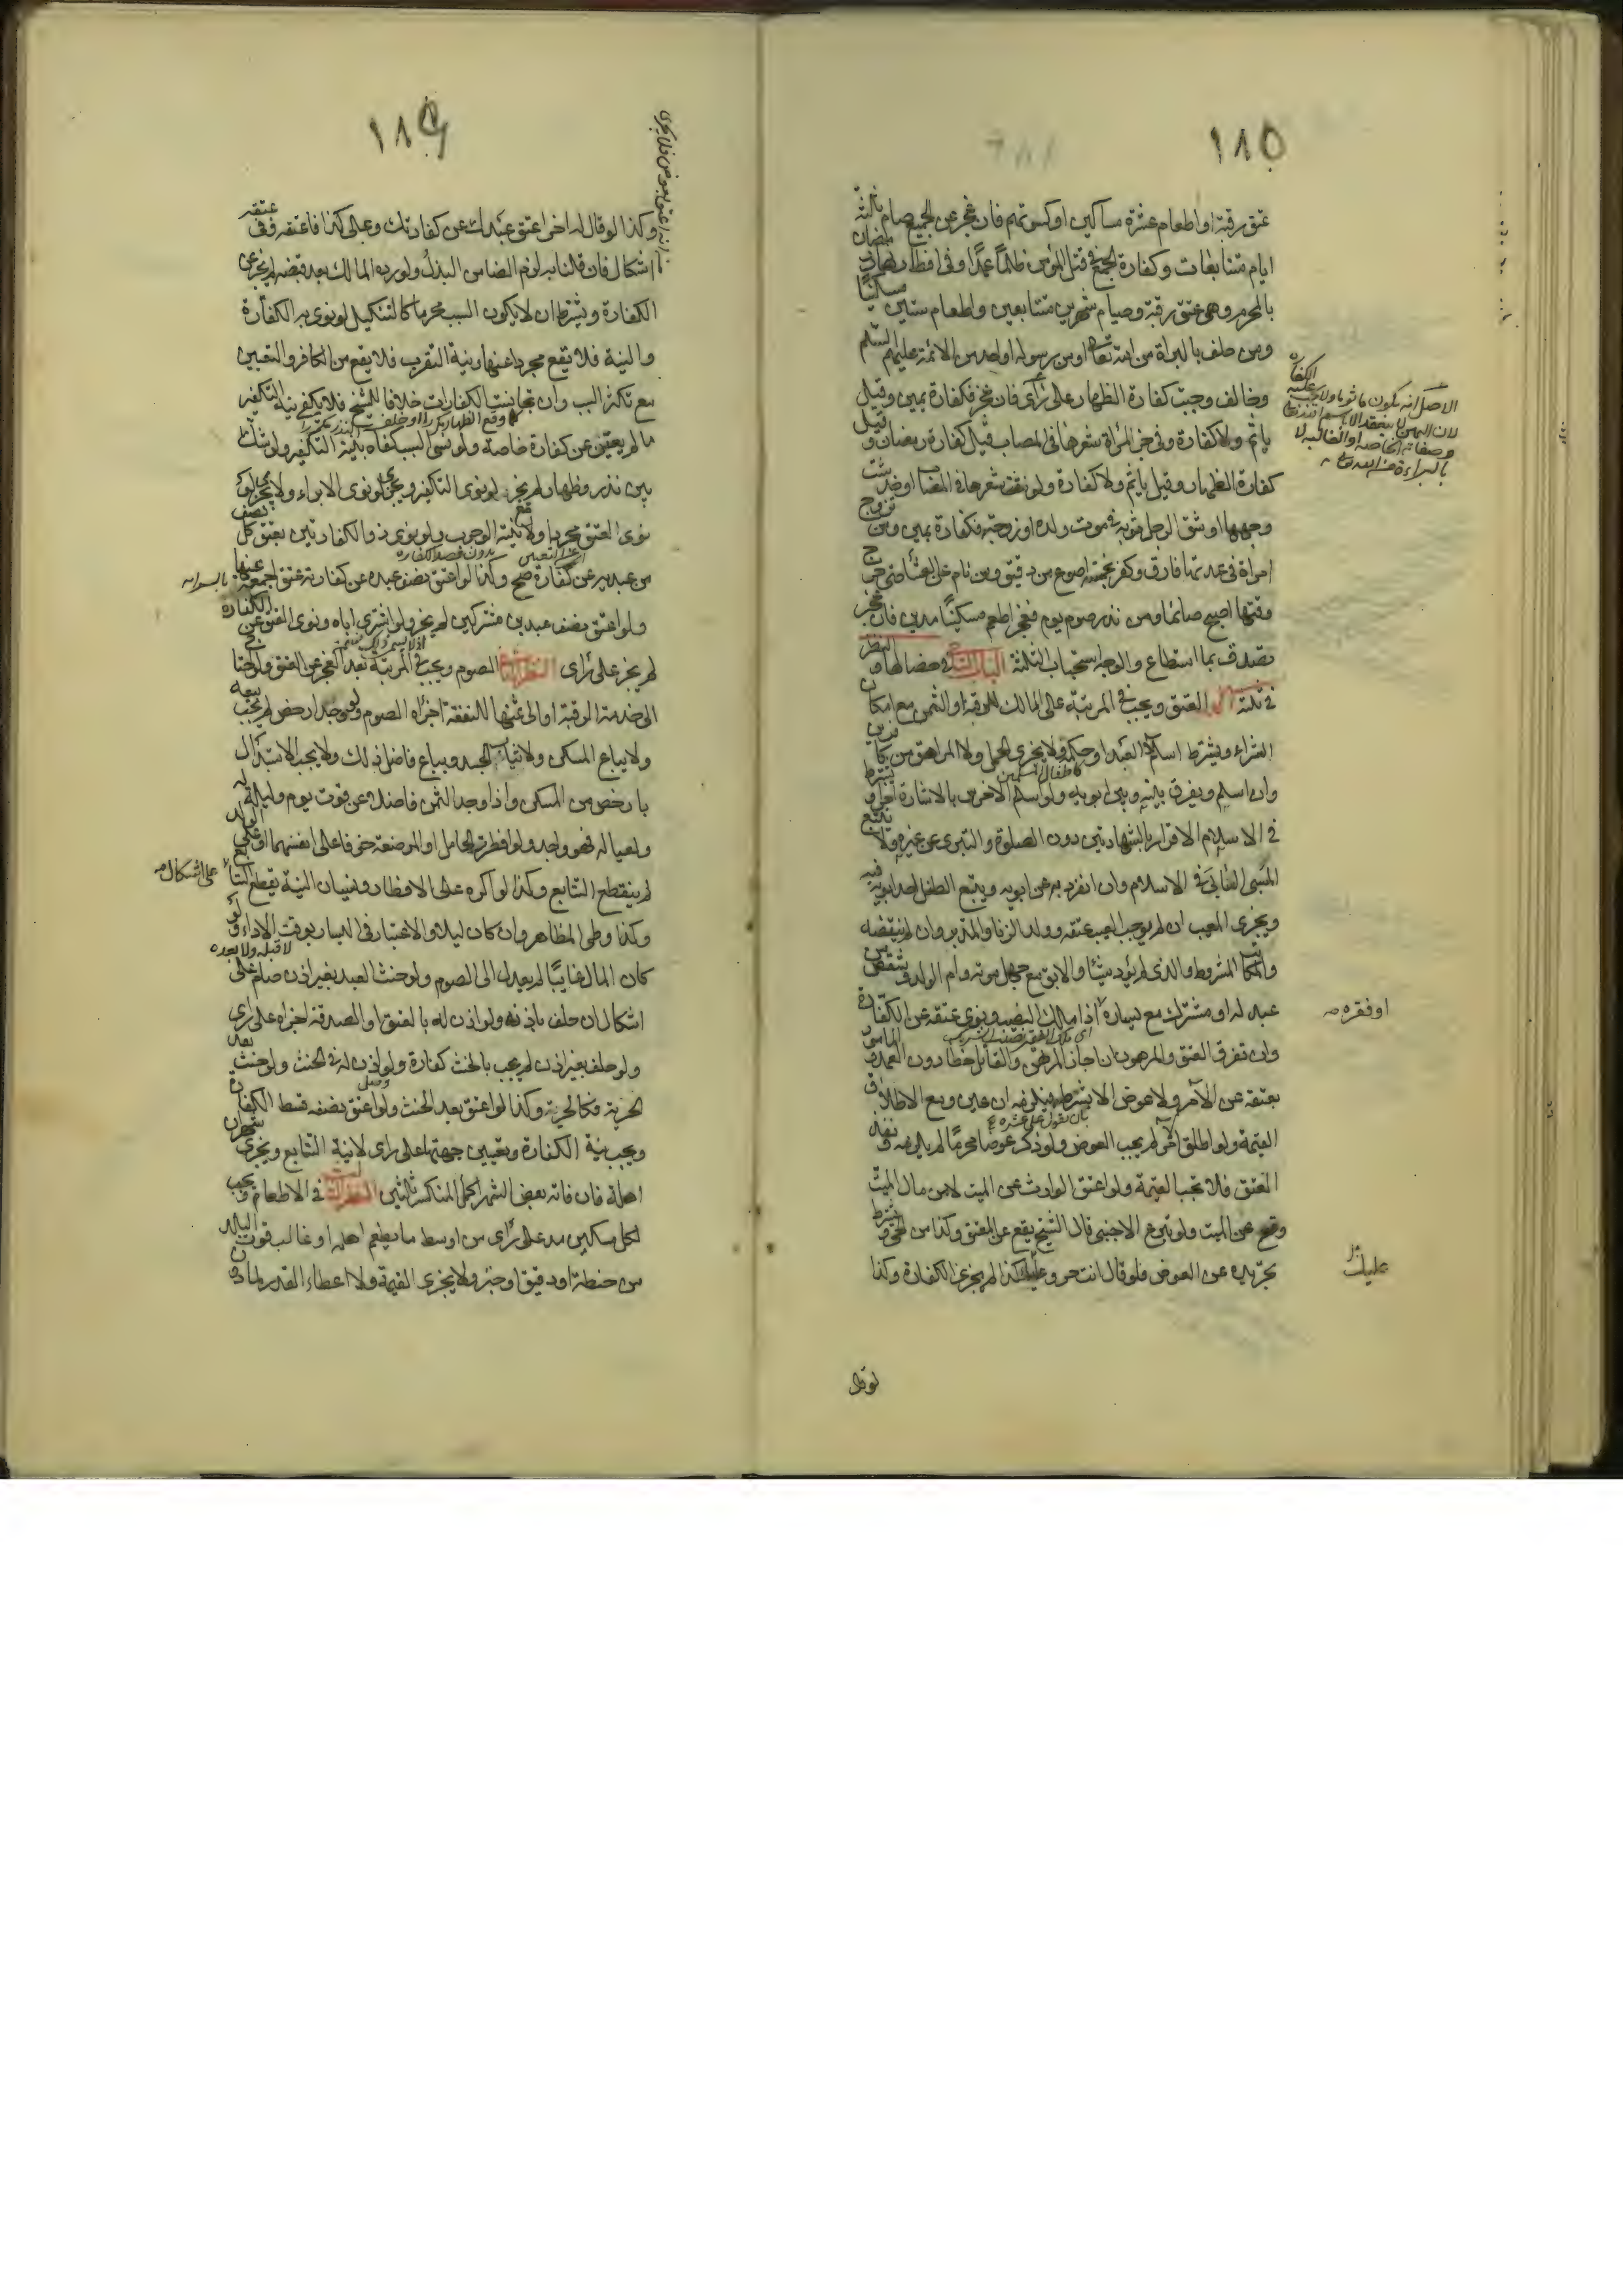 ١٨٥
عتق رقبة او اطعام عشرة مساكين او كسوتهم فان عجز عن الجميع صام ثلثة
ايام متتابعات وكفارة الجمع في قتل المؤمن ظلمًا عمدًا وفى افطار رمضان
بالمحرم وهى عتق رقبة وصيام شهرين متتابعين واطعام ستين مسكينًا
ومن حلف بالبراة من الله تعالى او من رسوله او احد من الائمة عليهم السلم
وخالف وجبت كفارة الظهار على رأى فان عجز فكفارة يمين وقيل
ياثم ولا كفارة وفى جز المراة شعرها فى المصاب قيل كفارة رمضان وقيل
كفارة الظهار وقيل ياثم ولا كفارة ولو نتفت شعرها فى المصاب او خدشت
وجهها او شق الرجل ثوبه فى موت ولده او زوجته فكفارة يمين ومن تزوج
امراة فى عدتها فارق وكفر بخمسة اصوع من دقيق ومن نام عن العشاء حتى خرج
وقتها اصبح صائما ومن نذر صوم يوم فعجز اطعم مسكينًا مدين فان عجز
تصدق بما استطاع والوجه استحباب الثلثة
فى ثلثة العتق ويجب فى المرتبة على المالك للرقبة او الثمن مع امكان
الشراء ويشترط اسلام العبد او حكمه ولا يجزى الحمل ولا المراهق من كافرين
كاطفال المسلمين
وان اسلم ويفرق بينه وبين ابويه ولو اسلم الاخرس بالاشارة اجزأ ويشترط
فى الاسلام الاقرار بالشهادتين دون الصلوة والتبرى عن غيره ولا يتبع
المسبى السابى فى الاسلام وان انفرد به عن ابويه ويتبع الطفل احد ابويه فيه
ويجزى المعيب ان لم يوجب العيب عتقه وولد الزنا والمدبر وان لم ينقضه
والمكاتب المشروط والذى لم يؤد شيئًا والابق مع جهل موته وام الولد وشقص من
عبد له او مشترك مع يساره اذا ملك النصيب ونوى عتقه عن الكفارة
وان تفرق العتق والمرهون ان اجاز المرتهن والقاتل خطا دون العمد
بعتقه عن الآمر ولا عوض الا بشرطه فيلزمه ان عين ومع الاطلاق
القيمة ولو اطلق الامر لم يجب العوض ولو ذكر عوضا محرمًا لم يلزمه ونفذ
العتق فلا تجب القيمة ولو اعتق الوارث عن الميت لا من مال الميت
وقع عن الميت ولو تبرع الاجنبى قال الشيخ يقع عن المعتق وكذا من الحى ويشترط
تجريده عن العوض فلو قال انت حر وعليك كذا لم يجز عن الكفارة وكذا
لو قال
الاصل انه يكون ماثوما ولا يجب عليه الكفارة
لان اليمين لا ينعقد الا
وصفاته الخاصة او الغالبة لا
بالبراءة من الله تعالى
او فقره صح
عليك
١٨٦
وكذا لو قال له اخر اعتق عبدك عن كفارتك وعلى كذا فاعتقه وفى عتقه
اشكال فان قلنا به لزم الضامن البذل ولو رده المالك بعد قبضه لم يجز عن
الكفارة ويشترط ان لا يكون السبب محرما كالتنكيل لو نوى به الكفارة
والنية فلا تقع مجردا عنها ونية التقرب فلا يقع من الكافر والتعيين
مع تكثر السبب وان تجانست الكفارات خلافا للشيخ فلا يكفى نية التكفير
ما لم يعين عن كفارة خاصة ولو نسى السبب كفاه نية التكفير ولو شك
بين نذر وظهار لم يجز لو نوى التكفير ويجزى لو نوى الابراء ولا يجزى لو
نوى العتق مجردا ولا بنية الوجوب ولو نوى ذو الكفارتين بعتق كل نصف
من عبديه عن كفارة صح وكذا لو اعتق نصف عبده عن كفارته عتق اجمع عنها
بالسراية
ولو اعتق نصف عبدين مشتركين لم يجز ولو اشترى اباه ونوى العتق عن الكفارة
لم يجز على رأى الصوم ويجب فى المرتبة بعد العجز عن العتق ولو احتاج
الى خدمة الرقبة او الى ثمنها للنفقة اجزأه الصوم ولو وجد ارخص لم يجب بيعه
ولا يباع المسكن ولا ثياب الجسد ويباع فاضل ذلك ولا يجب الاستبدال
بارخص من المسكن واذا وجد الثمن فاضلا عن قوت يوم وليلة له
ولعياله فهو واجد ولو افطرت الحامل او المرضعة خوفا على انفسهما او على الولد
لم ينقطع التتابع وكذا لو اكره على الافطار ونسيان النية يقطع التتابع
على اشكال صح
وكذا وطى المظاهر وان كان ليلا والاعتبار فى اليسار بوقت الاداء ولو
لا قبله ولا بعده
كان المال غائبًا لم يعدل الى الصوم ولو حنث العبد بغير اذن صام على
اشكال ان حلف باذنه ولو اذن له بالعتق او الصدقة اجزاه على راى
ولو حلف بغير اذن لم يجب بالحنث كفارة ولو اذن له فى الحنث ولو حنث بعد
الحرية فكالحرية وكذا لو اعتق بعد الحنث ولو اعتق نصفه قسط الكفارة
ويجب نية الكفارة وتعيين جهتها على راى لا نية التتابع ويجزى شهران
اهلة فان فاته بعض الشهر اكمل المنكسر ثلثين فى الاطعام ويجب
لكل مسكين مد على رأى من اوسط ما يطعم اهله او غالب قوت البلد
من حنطة او دقيق او خبز ولا يجزى القيمة ولا اعطاء القدر لما دون